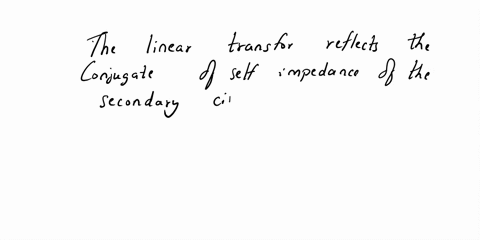 The linear transfor reflects the
Conjugate of self impedance of the
secondary ci